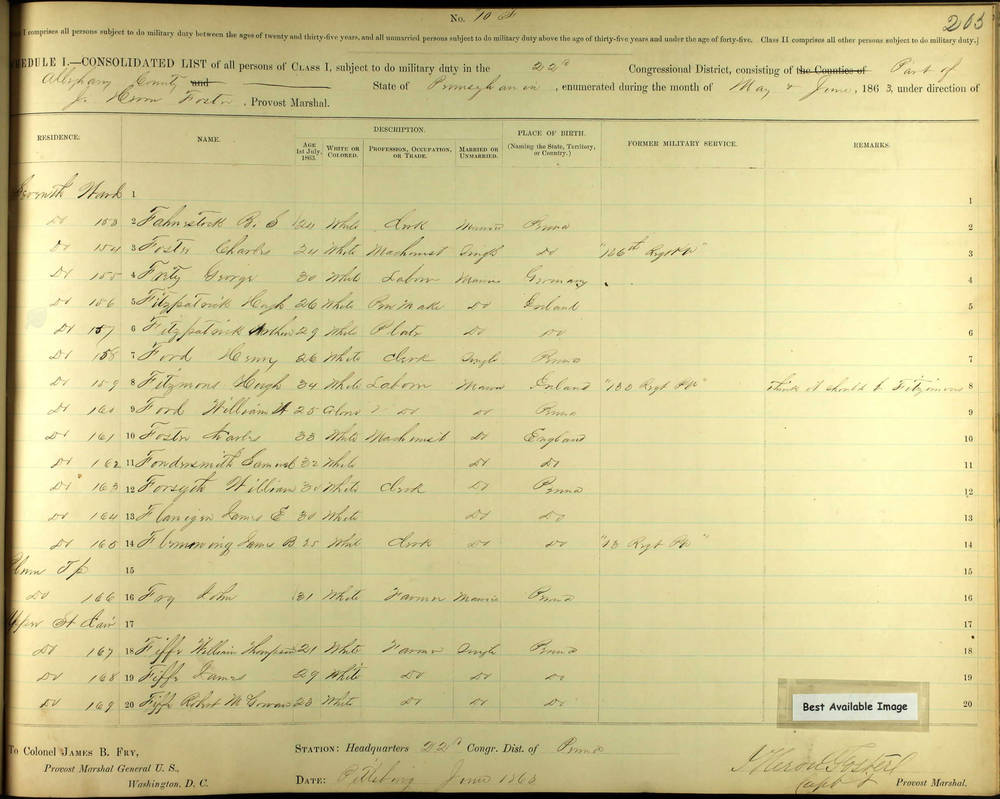 No. 10 F
263
Class I comprises all persons subject to do military duty between the ages of twenty and thirty-five years, and all unmarried persons subject to do military duty above the age of thirty-five years and under the age of forty-five. Class II comprises all other persons subject to do military duty.]
SCHEDULE I.—CONSOLIDATED LIST of all persons of CLASS I, subject to do military duty in the 22d Congressional District, consisting of the Counties of Part of
Allegheny County and State of Pennsylvania, enumerated during the month of May & June, 1863, under direction of
J. Heron Foster, Provost Marshal.
RESIDENCE. NAME. DESCRIPTION. PLACE OF BIRTH. (Naming the State, Territory, or Country.) FORMER MILITARY SERVICE. REMARKS.
AGE 1st July, 1863. WHITE OR COLORED. PROFESSION, OCCUPATION, OR TRADE. MARRIED OR UNMARRIED.
Seventh Ward 1 1
Do 153 2 Fahnestock B. S 24 White Clerk Married Penna 2
Do 154 3 Foster Charles 24 White Machinist Single Do "136th Regt Pa" 3
Do 155 4 George 30 White Labor Germany 4
Do 156 5 Fitzpatrick Hugh 26 White Do 5
Do 157 6 Fitzpatrick Arthur 29 White Do Do 6
Do 158 7 Ford Henry 26 White Clerk Single Penna 7
Do 159 8 Fitzmons Hough 34 White Labor "123 Regt Pa" think it should be Fitzimons 8
Do 160 9 Ford William H 25 Colored Do Do Penna 9
Do 161 10 Foster Charles 33 White Machinist Do England 10
Do 162 11 Fondersmith Samuel 32 White Do Do 11
Do 163 12 Forsyth William 30 White Clerk Do Penna 12
Do 164 13 Flanigen James E 30 White Do Do 13
Do 165 14 James B 25 White Clerk Do Do "13 Regt Pa" 14
Plum Tp 15 15
Do 166 16 Foy John 31 White Farmer Married Penna 16
Upper St Clair 17 17
Do 167 18 Fiffe William Thompson 21 White Farmer Single Penna 18
Do 168 19 Fiffe James 29 White Do Do Do 19
Do 169 20 Fiffe Robert McGowan 23 White Do Do Do 20
Best Available Image
To Colonel JAMES B. FRY,
Provost Marshal General U. S.,
Washington, D. C.
STATION: Headquarters 22d Congr. Dist. of Penna
DATE: Pittsburg June 1863
J Heron Foster
Capt Provost Marshal.